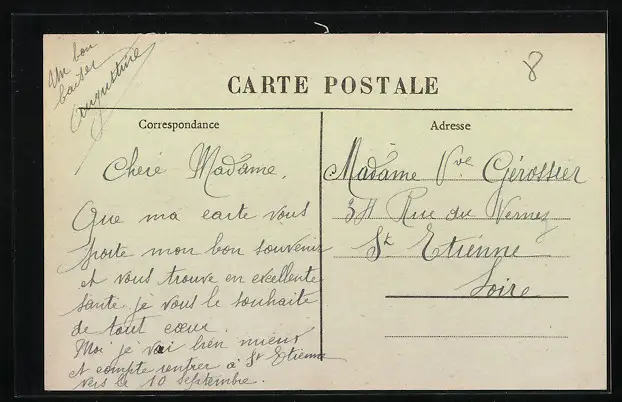 Un bon
baiser
Augustine
8
CARTE POSTALE
Correspondance
Cheré Madame,
Que ma carte vous
porte mon bon souvenir
et vous trouve en excellente
santé je vous le souhaite
de tout cœur.
Moi je vai bien mieux
et compte rentrer à St Etienne
vers le 10 septembre.
Adresse
Madame Vve Gérossier
34 Rue du Vernez
St Etiénne
Loire